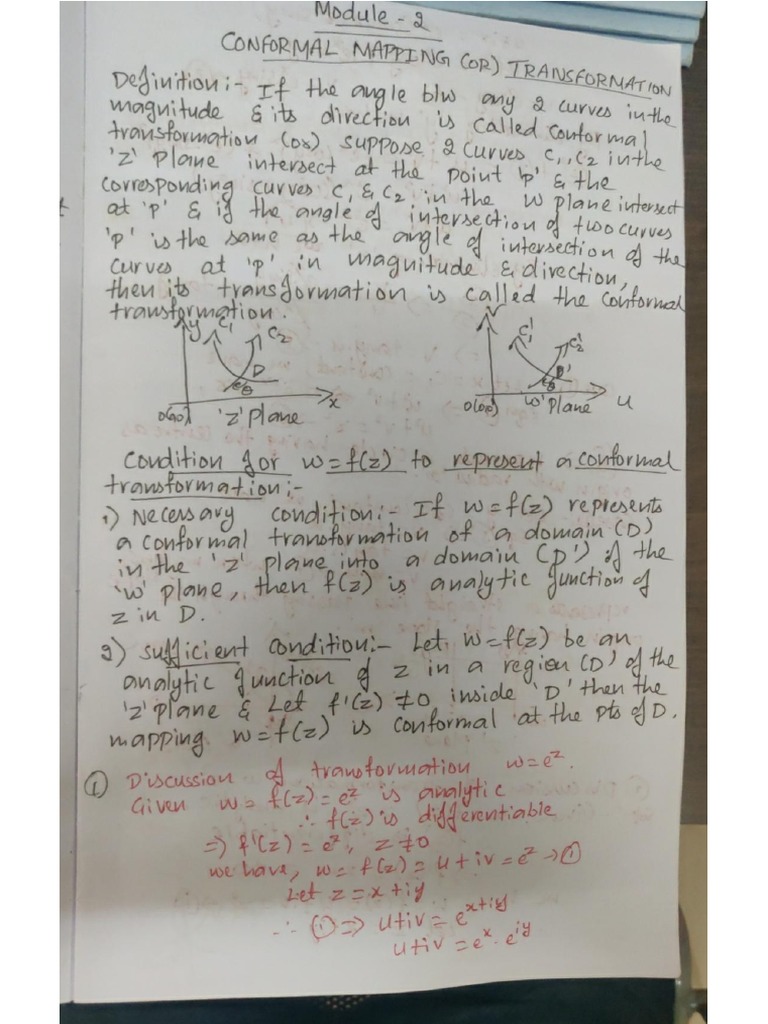 Module - 2
CONFORMAL MAPPING (OR) TRANSFORMATION
Definition:- If the angle b/w any 2 curves in the
magnitude & its direction is called conformal
transformation (or) suppose 2 curves C₁, C₂ in the
'Z' plane intersect at the point 'p' & the
corresponding curves C₁ & C₂ in the W plane intersect
at 'p' & if the angle of intersection of two curves
'p' is the same as the angle of intersection of the
curves at 'p' in magnitude & direction,
then its transformation is called the conformal
transformation.
y C₁ C₂ D θ 0(0,0) 'Z' plane x
v C₁' C₂' D' θ 0(0,0) 'W' plane u
Condition for w=f(z) to represent a conformal
transformation:-
1) Necessary condition:- If w=f(z) represents
a conformal transformation of a domain (D)
in the 'Z' plane into a domain (D') of the
'w' plane, then f(z) is analytic function of
z in D.
2) Sufficient condition:- Let w=f(z) be an
analytic function of z in a region (D) of the
'Z' plane & Let f'(z) ≠0 inside 'D' then the
mapping w=f(z) is conformal at the pts of D.
① Discussion of transformation w=eᶻ.
Given w= f(z)=eᶻ is analytic
∴ f(z) is differentiable
=> f'(z) = eᶻ, z≠0
we have, w= f(z)= u+iv=eᶻ → ①
Let z=x+iy
∴ ① => u+iv= eˣ⁺ⁱʸ
u+iv =eˣ. eⁱʸ